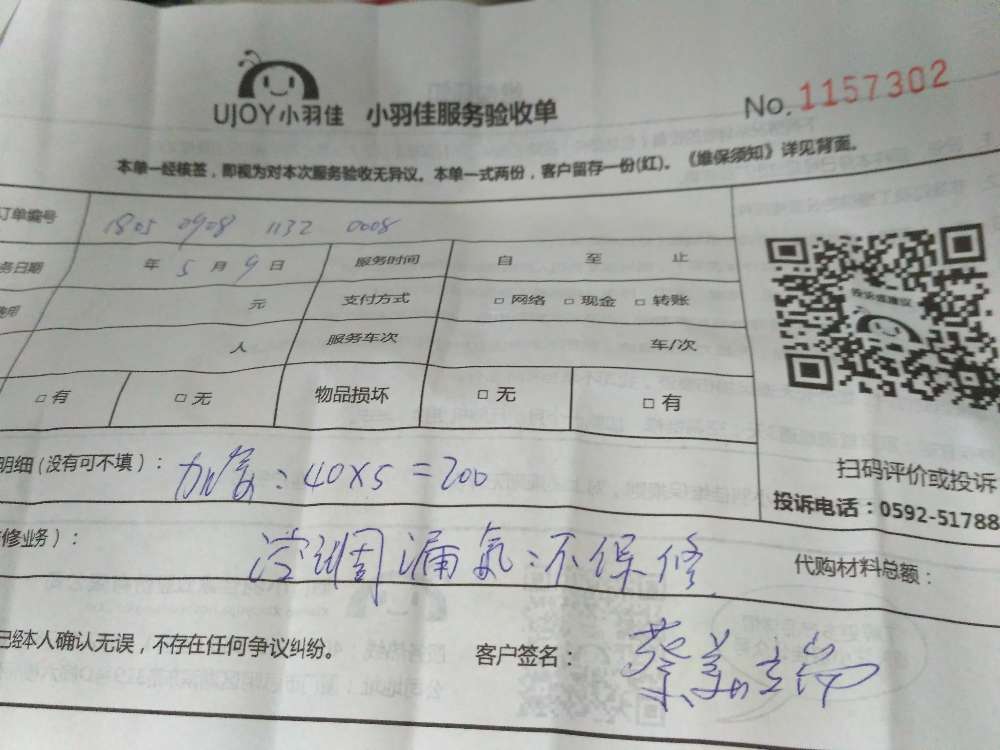 UJOY小羽佳 小羽佳服务验收单 No. 1157302
本单一经核签，即视为对本次服务验收无异议。本单一式两份，客户留存一份(红)。《维保须知》详见背面。
订单编号 1805 0908 1132 0008
务日期 年 5 月 9 日 服务时间 自 至 止
费用 元 支付方式 □ 网络 □ 现金 □ 转账
人 服务车次 车/次
□ 有 □ 无 物品损坏 □ 无 □ 有
投诉或建议
扫码评价或投诉
投诉电话：0592-51788
明细（没有可不填）： 加氨：40×5＝200
修业务）： 空调因漏氨：不保修 代购材料总额：
已经本人确认无误，不存在任何争议纠纷。 客户签名：